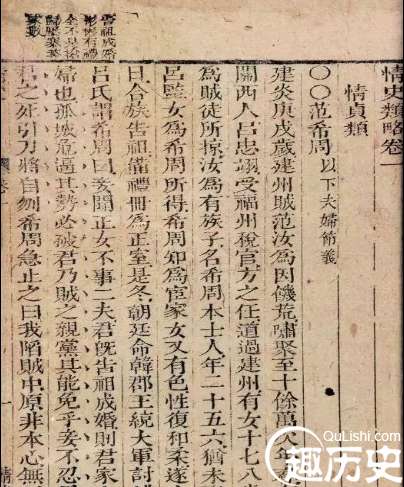 情史類略卷一
情貞類
〇〇范希周 以下夫婦節義
建炎庚戌歲建州賊范汝為因饑荒嘯聚至十餘萬次年
關西人呂忠翊受福州稅官方之任道過建州有女十七八
為賊徒所掠汝為有族子名希周本士人年二十五六猶未
呂監女為希周所得希周知為宦家女又有色性復和柔遂
日合族告祖備禮冊為正室是冬朝廷命韓郡王統大軍討
呂氏謂希周曰妾聞正女不事二夫君既告祖成婚則君家
婦也孤城危逼其勢必破君乃賊之親黨其能免乎妾不忍
君之死引刀將自刎希周急止之曰我陷賊中原非本心無
告祖成婚
彬彬有禮
全不是掠
QuLishi.com
趣历史